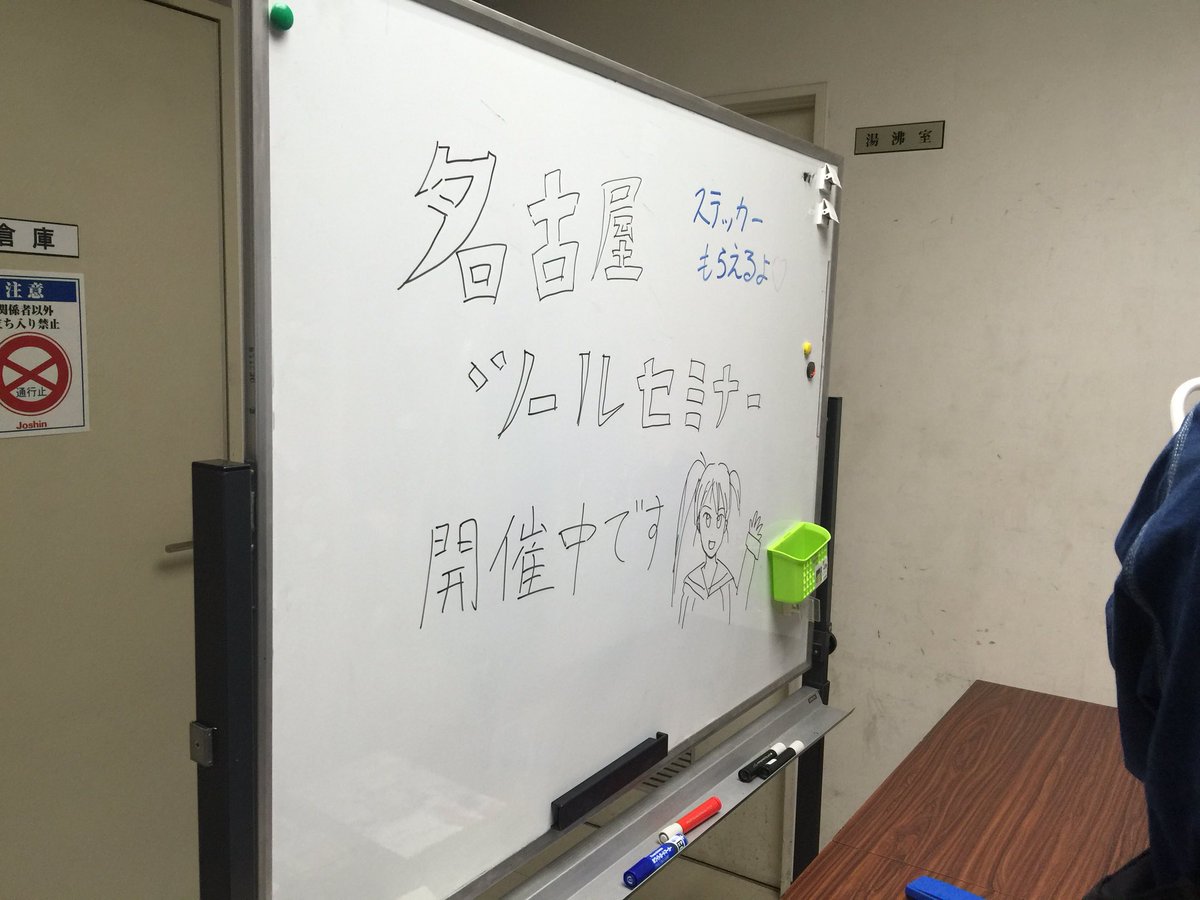 名古屋
ステッカー
もらえるよ♡
ツールセミナー
開催中です
湯沸室
倉庫
注意
関係者以外
立ち入り禁止
通行止
Joshin